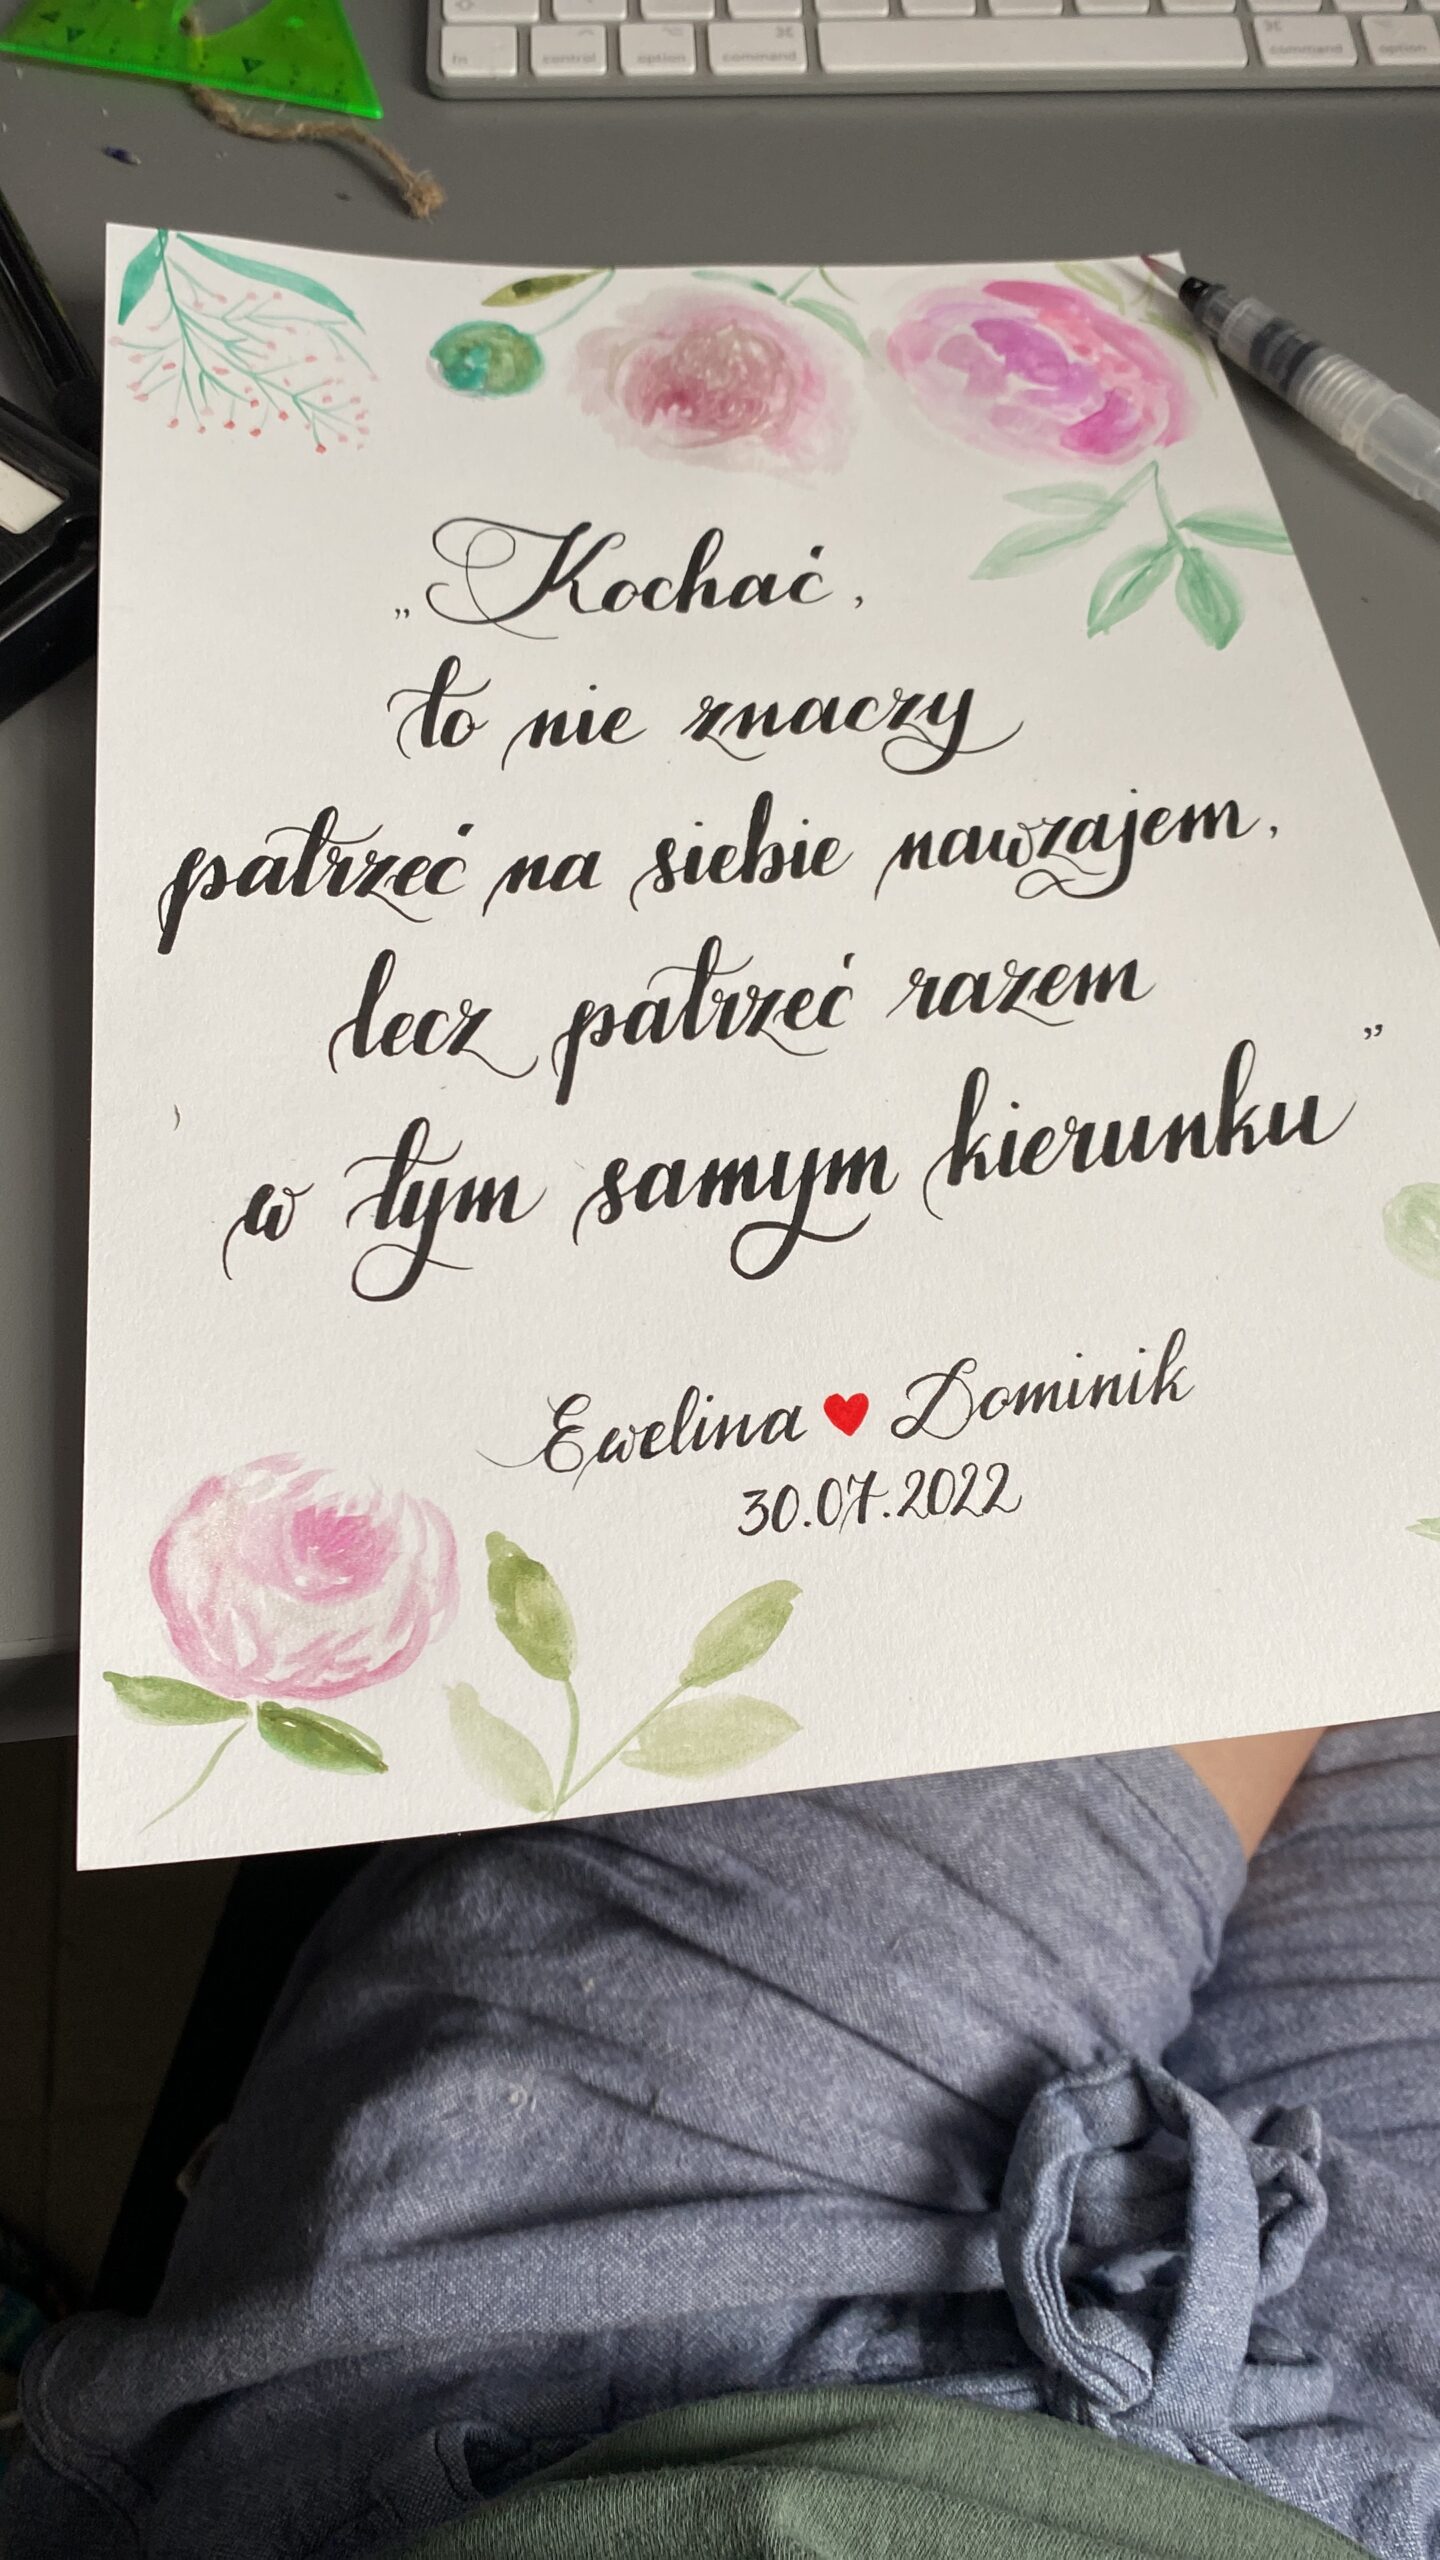 fn control option command command option
„Kochać,
to nie znaczy
patrzeć na siebie nawzajem,
lecz patrzeć razem
w tym samym kierunku”
Ewelina ♥ Dominik
30.07.2022